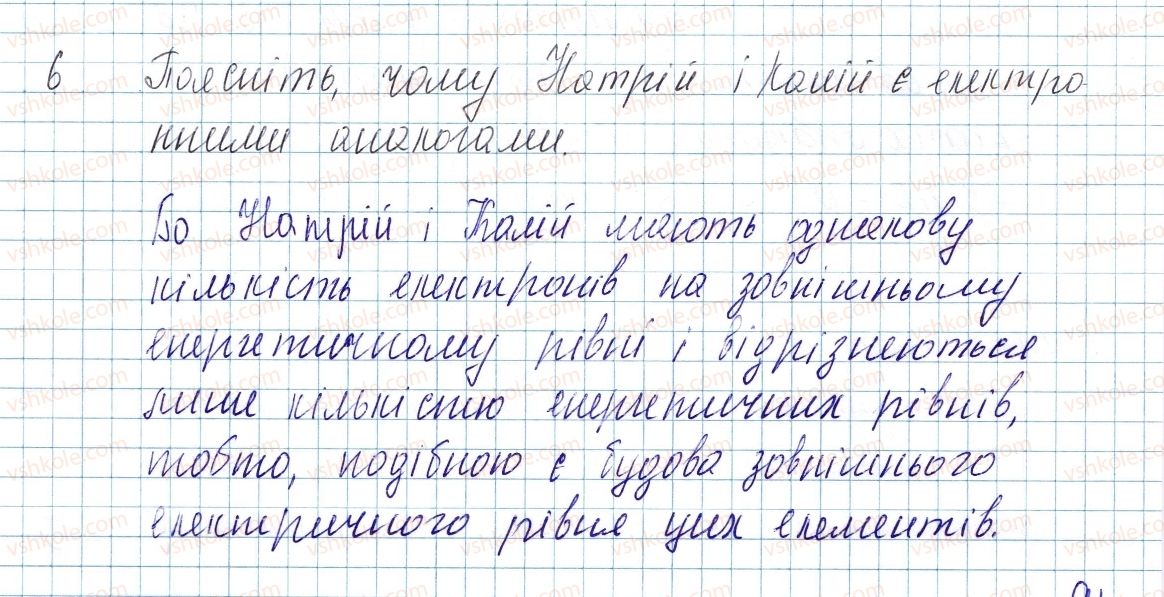 6 Поясніть, чому Натрій і Калій є електро
нними аналогами.
Бо Натрій і Калій мають однакову
кількість електронів на зовнішньому
енергетичному рівні і відрізняються
лише кількістю енергетичних рівнів,
тобто, подібною є будова зовнішнього
електричного рівня цих елементів.